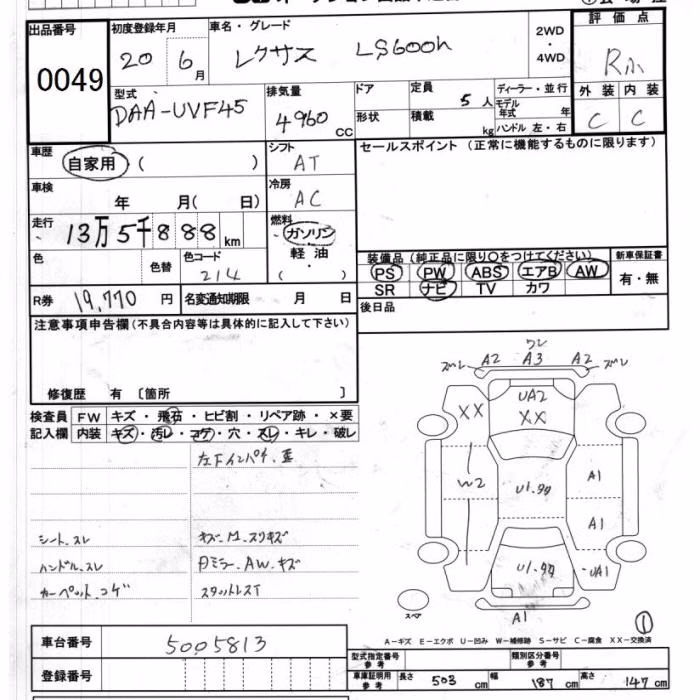 出品番号
0049
初度登録年月
20 6月
車名・グレード
レクサス LS600h
2WD
・
4WD
評価点
R小
外装 内装
C C
型式
DAA-UVF45
排気量
4960 CC
ドア
形状
定員
5人
積載
kg
ディーラー・並行
モデル
年式 年
ハンドル 左・右
車歴
自家用 ( )
シフト
AT
セールスポイント (正常に機能するものに限ります)
車検
年 月( 日)
冷房
AC
走行
13万5千888km
燃料
ガソリン
軽油
・
( )
色
色替
色コード
214
装備品 (純正品に限り○をつけてください)
新車保証書
PS PW ABS エアB AW
SR ナビ TV カワ
有・無
R券 19,770円
名変通知期限 月 日
後日品
注意事項申告欄(不具合内容等は具体的に記入して下さい)
修復歴 有 [箇所 ]
検査員
記入欄
FW キズ・飛石・ヒビ割・リペア跡・×要
内装 キズ・汚レ・コゲ・穴・スレ・キレ・破レ
シート.スレ
ハンドル.スレ
カーペット.コゲ
キズ.M.スリキズ
Pミラー.AW.キズ
スタットレスT
ワレ
ズレ A2 A3 A2 ズレ
UA2
XX XX
W2
A1
A1
UA1
A1
スペア
①
A-キズ E-エクボ U-凹み W-補修跡 S-サビ C-腐食 XX-交換済
車台番号
5005813
登録番号
型式指定番号
参考
類別区分番号
参考
車庫証明用
参考
長さ 503 cm
幅 187 cm
高さ 147 cm